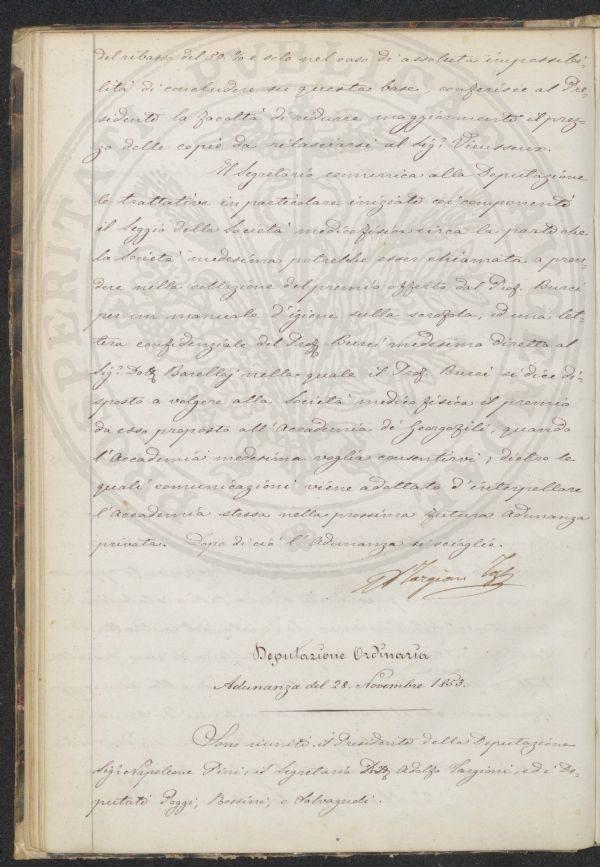 del ribasso del 50. % e solo nel caso di assoluta impossibi-
lità di concludere su questa base, conferisce al Pre-
sidente la facoltà di ridurre maggiormente il prez-
zo delle copie da rilasciarsi al Sig.r Vieusseux.
Il Segretario comunica alla Deputazione
le trattative in particolare iniziate coi componenti
il Seggio della Società medicofisica circa la parte che
la Società medesima potrebbe esser chiamata a pren-
dere nella collazione del premio offerto dal Prof. Burci
per un manuale d'igiene sulla scrofola, ed una let-
tera confidenziale del Prof. Burci medesimo diretta al
Sig.r Dott. Barellaj nella quale il Prof. Burci si dice di-
sposto a volgere alla Società medico fisica il premio
da esso proposto all'Accademia de' Georgofili, quando
l'Accademia medesima voglia consentirvi; dietro le
quali comunicazioni viene adottato d'interpellare
l'Accademia stessa nella prossima futura Adunanza
privata. Dopo di ciò l'Adunanza si scioglie.
A Targioni Tozz
Deputazione Ordinaria
Adunanza del 28. Novembre 1853.
Sono riuniti il Presidente della Deputazione
Sig.r Napoleone Pini, il Segretario Dott. Adolfo Targioni, ed i De-
putati Poggi, Bossini, e Salvagnoli.
PROSPERITATI PUBLICAE AUGENDAE